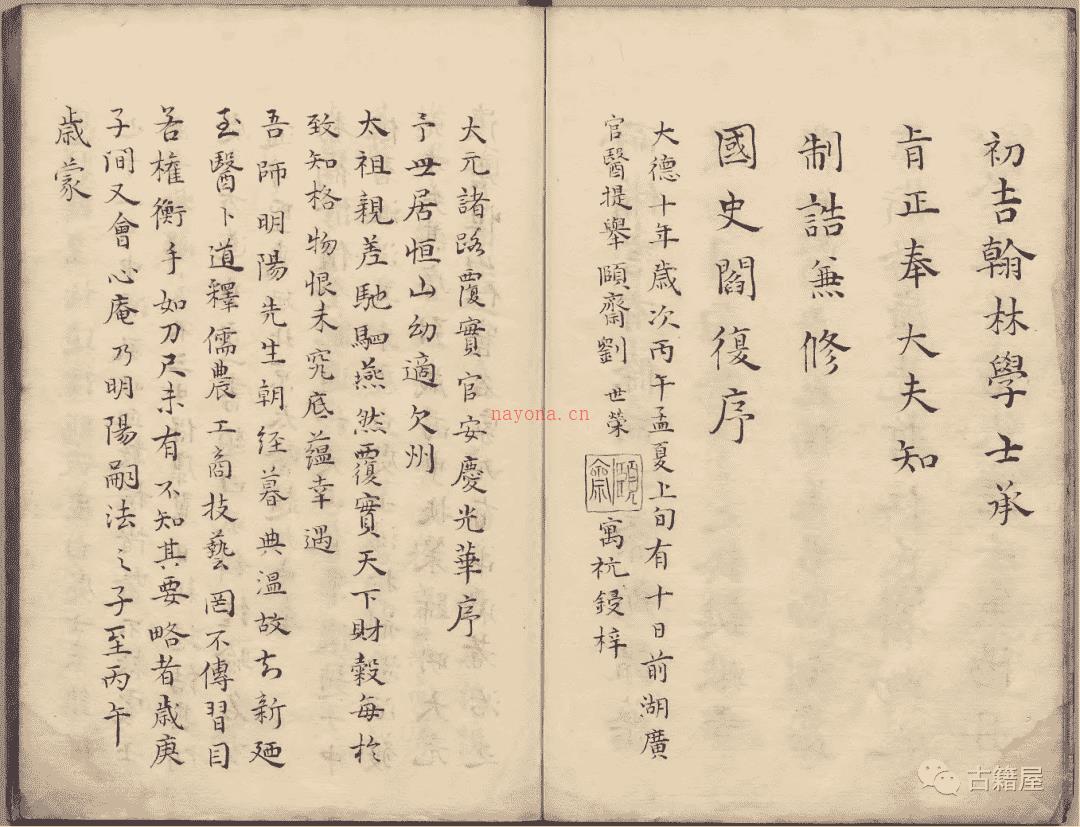 初吉翰林學士承
㫖正奉大夫知
制誥兼修
國史閻復序
大德十年歲次丙午孟夏上旬有十日前湖廣
官醫提舉頤齋劉世榮 頤齋 寓杭鋟梓
大元諸路覆實官安慶光華序
予世居恒山幼適欠州
太祖親差馳駟燕然覆實天下財穀每於
致知格物恨未究底蘊幸遇
吾師明陽先生朝經暮典溫故知新廼
至醫卜道釋儒農工商技藝罔不傳習目
若權衡手如刀尺未有不知其要略者歲庚
子間又會心庵乃明陽嗣法之子至丙午
歲蒙
nayona.cn
古籍屋